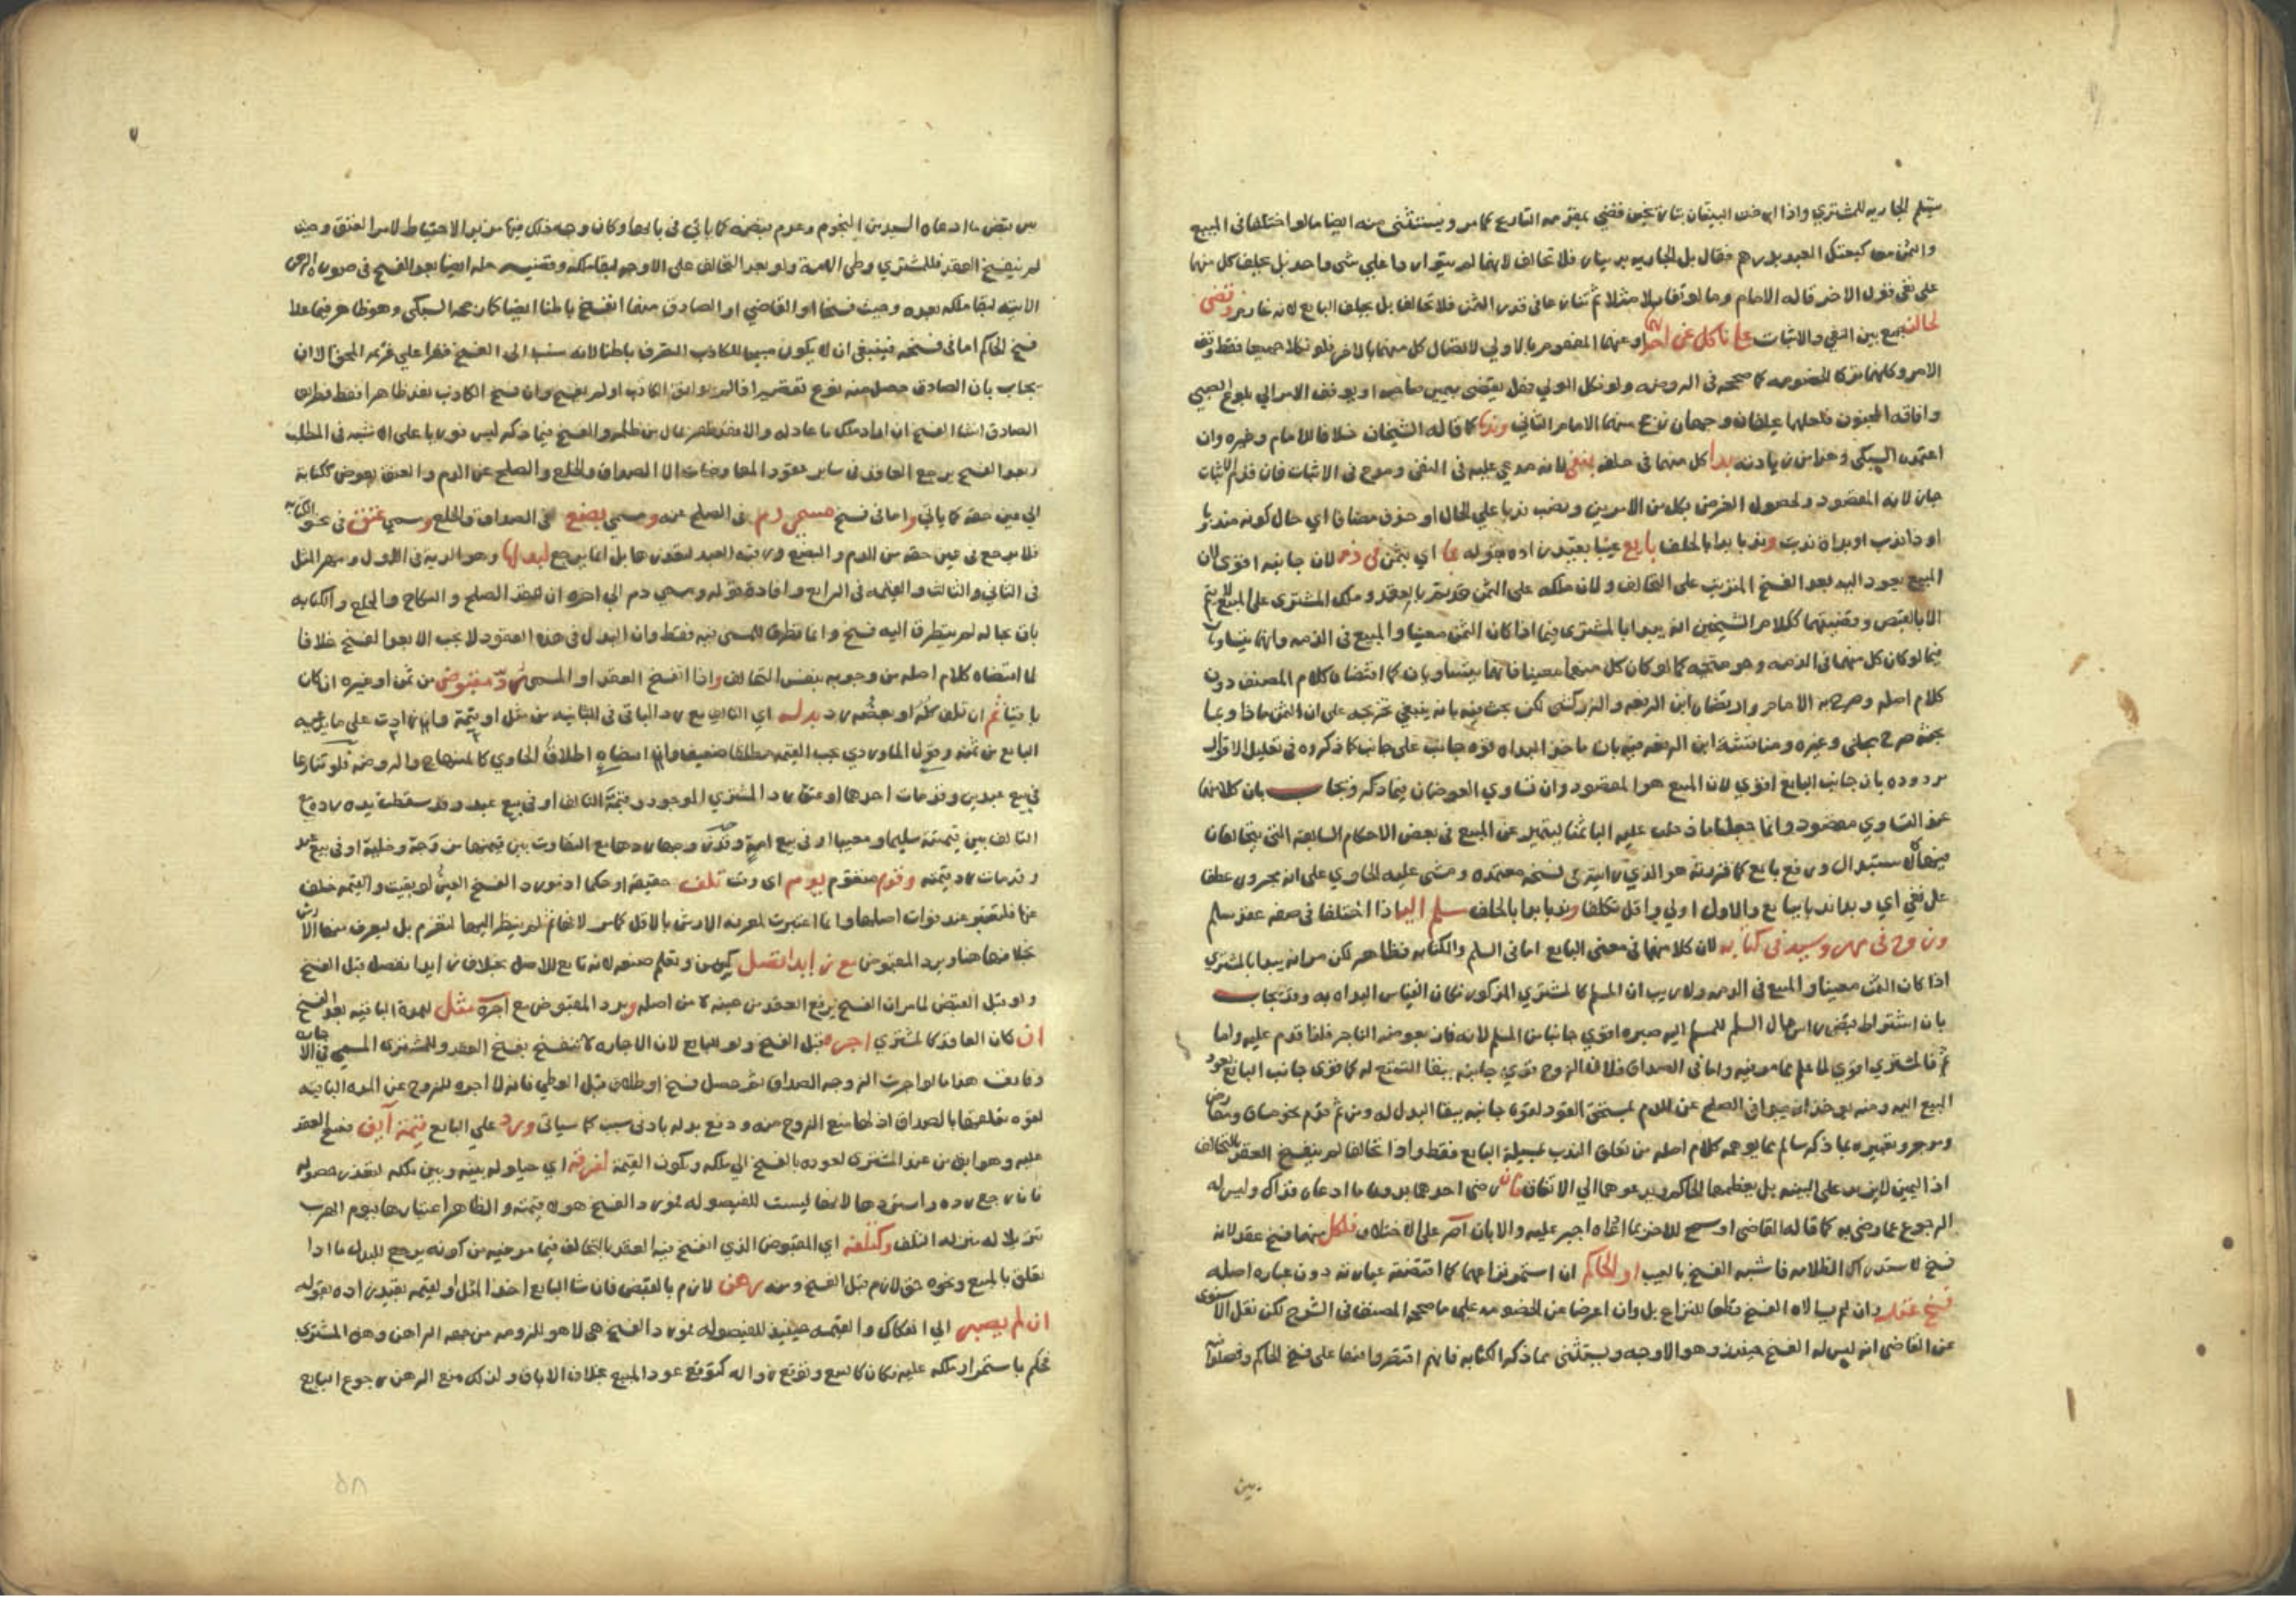 يسلم الجاريه للمشتري واذا ارخت البينتان بتاريخين قضي بمقدمه التاريخ كما مر ويستثنى منه ايضا ما لو اختلفا في المبيع
والثمن معا كبعتك العبد بدرهم فقال بل الجاريه بدينار فلا تحالف لانهما لم يتواردا علي شي واحد بل يحلف كل منهما
على نفي قول الاخر قاله الامام وما لو تقايلا مثلا ثم تنازعا في قدر الثمن فلا تحالف بل يحلف البايع لانه غارم وقضى
لحالف جمع بين النفي والاثبات على ناكل عن احدهما او عنهما المفهوم بالاولي لاتصال كل منهما بالاخر فلو نكلا جميعا فقط وقف
الامر وكانهما تركا الخصومه كما صححه في الروضه ولو نكل الولي فهل يقضى بيمين صاحبه او يوقف الامر الي بلوغ الصبي
وافاقه المجنون فلعلهما يحلفان وجهان رجح منهما الامام الثاني وندبا كما قاله الشيخان خلافا للامام وغيره وان
اعتمده السبكي وهذا من زيادته بدا كل منهما في حلفه بنفي لانه مدعي عليه في النفي ومدع في الاثبات فان قدم الاثبات
جاز لانه المقصود ولحصول الغرض بكل من الامرين ونصب ندبا علي الحال او حذف مضافا اي حال كونه مندوبا
او ذا ندب او بداة ندب وندبا بدا بالحلف بايع عينا بتقديره اراده بقوله بما اي بثمن في ذمه لان جانبه اقوى لان
المبيع يعود اليه بعد الفسخ المترتب على التحالف ولان ملكه على الثمن قد يتم بالعقد وملك المشتري على المبيع لا يتم
الا بالقبض وقضيتهما ككلام الشيخين انه يبدا بالمشتري فيما اذا كان الثمن معينا والمبيع في الذمه وانهما يتساويان
فيما لو كان كل منهما في الذمه وهو متجه كما لو كان كل منهما معينا فانهما يتساويان كما اقتضاه كلام المصنف دون
كلام اصله وصرح به الامام وارتضاه ابن الرفعه والزركشي لكن بحث فيه بانه ينبغي تخريجه على ان الثمن ماذا وبما
بحثه صرح مجلي وغيره ومناقشه ابن الرفعه فيه بان ماخذ البداه قوه جانب على جانب كما ذكروه في تعليل الاقوال
مردوده بان جانب البايع اقوي لان المبيع هو المقصود وان تساوي العوضان فيما ذكر ويجاب بان كلا منهما
عند التساوي مقصود وانما جعلنا ما دخلت عليه البا ثمنا ليتميز عن المبيع في بعض الاحكام السابقه التي يتخالفان
فيها كالاستبدال ورفع بايع كما قررته هو الذي رايته في نسخه معتمده ومشى عليه الحاوي على انه مجرور عطفا
على نفي اي وبداندبا ببايع والاول اولي واقل تكلفا وندبا بدا بالحلف مسلم اليه اذا اختلفا في صفه عقد سلم
وزوج في مهر وسيد في كتابه لان كلا منهما في معنى البايع اما في السلم والكتابه فظاهر لكن مر انه يبدا بالمشتري
اذا كان الثمن معينا والمبيع في الذمه ولا ريب ان المسلم كالمشتري المذكور فكان القياس البداه به وقد يجاب
بان اشتراط قبض راس مال السلم للمسلم اليه صيره اقوي جانبا من المسلم لانه فاز بعوضه الناجز فلذا قدم عليه واما
ثم فالمشتري اقوي لما علم مما مر فيه واما في الصداق فلان الزوج قوي جانبه ببقا التمتع له كما قوى جانب البايع بعود
المبيع اليه ومنه يوخذ انه يبدا في الصلح عن الدم بمستحق القود لقوه جانبه ببقا البدل له ومن ثم قدم نحو صان ومتقارض
وموجر وتعبيره بما ذكر سالم مما يوهمه كلام اصله من تعلق الندب بمسيلة البايع فقط واذا تحالفا لم ينفسخ العقد بالتحالف
اذ اليمين لا يزيد على البينه بل يعظهما الحاكم ويدعوهما الي الاتفاق فان رضى احدهما بدون ما ادعاه فذاك وليس له
الرجوع عما رضي به كما قاله القاضي او سمح للاخر بما ادعاه اجبر عليه والا بان اصر على الاختلاف فلكل منهما فسخ عقد لانه
فسخ لاستدراك الظلامه فاشبه الفسخ بالعيب او لحاكم ان استمر نزاعهما كما اقتضته عبارته دون عباره اصله
فسخ عقد وان لم يسالاه الفسخ قطعا للنزاع بل وان اعرضا عن الخصومه على ما صححه المصنف في الشرح لكن نقل الاسنوي
عن القاضي انه ليس له الفسخ حينئذ وهو الاوجه ويستثنى مما ذكر الكتابه فانهم اقتصروا فيها على فسخ الحاكم وفصلوا
بين
٧
بين قبض ما ادعاه السيد من النجوم وعدم قبضه كما ياتي في بابها وكان وجه ذلك فيها مزيد الاحتياط لامر العتق وحيث
لم ينفسخ العقد فللمشتري وطي الامة ولو بعد التحالف على الاوجه لبقا ملكه وقضيته حله ايضا بعد الفسخ في صوره الرهن
الاتيه لبقا ملكه بعده وحيث فسخا او القاضي او الصادق منهما انفسخ باطنا ايضا كما رجحه السبكي وهو ظاهر فيما عدا
فسخ الحاكم اما في فسخه فينبغي ان لا يكون مبيحا للكاذب التصرف باطنا لانه سبب الى الفسخ
يجاب بان الصادق حصل منه نوع تقصير اذ لم يوافق الكاذب او لم يفسخ وان فسخ الكاذب نفذ ظاهرا فقط فطريق
الصادق انشا الفسخ ان اراد ملك ما عاد له والا فقد ظفر بمال من ظلمه والفسخ فيما ذكر ليس فوريا على الاشبه في المطلب
وبعد الفسخ يرجع العاقد في ساير عقود المعاوضات الا الصداق والخلع والصلح عن الدم والعتق بعوض ككتابة
الي عين حقه كما ياتي واما في فسخ مسمي دم في الصلح عنه ومسمي بضع في الصداق والخلع ومسمي عتق في نحو الكتابه
فلا يرجع في عين حقه من الدم والبضع ورقبه العبد لتعذرها بل انما يرجع لبدلها وهو الديه في الاول ومهر المثل
في الثاني والثالث والقيمه في الرابع وافاده قوله ومسمي دم الي اخره ان عقد الصلح والنكاح والخلع والكتابه
باق بحاله لم يتطرق اليه فسخ وانما تطرق للمسمى فيه فقط وان البدل في هذه العقود لا يجب الا بعد الفسخ خلافا
لما اقتضاه كلام اصله من وجوبه بنفس التحالف واذا انفسخ العقد او المسمى رد مقبوض من ثمن او غيره ان كان
باقيا ثم ان تلف كله او بعضه رد بدله اي التالف مع رد الباقي في الثانيه من مثل او قيمة وان زادت على ما يدعيه
البايع من ثمنه وقول الماوردي يجب القيمه مطلقا ضعيف وان اقتضاه اطلاق الحاوي كالمنهاج والروضه فلو تنازعا
في بيع عبدين وقد مات احدهما او عتق رد المشتري الموجود وقيمة التالف او في بيع عبد وقد سقطت يده رده مع
التالف بين قيمته سليما ومعيبا او في بيع امة وقد زوجها ردها مع التفاوت بين قيمتها مزوجة وخلية او في بيع عبد
وقد مات رد قيمته وقوم متقوم يوم اي وقت تلف حقيقه او حكما اذ مورد الفسخ العين لو بقيت والقيمه خلف
عنها فلتعتبر عند فوات اصلها وانما اعتبرت لمعرفه الارش بالاقل كما مر لانها ثم لم ينظر اليها لتغرم بل ليعرف منها الارش
بخلافها هنا ويرد المقبوض مع زايد اتصل كسمن وتعلم صنعه لانه تابع للاصل بخلاف زايد انفصل قبل الفسخ
ولو قبل القبض لما مر ان الفسخ يرفع العقد من حينه لا من اصله ويرد المقبوض مع اجرة مثل للمدة الباقيه بعد الفسخ
ان كان العاقد كالمشتري اجره قبل الفسخ ولو للبايع لان الاجاره لا تنفسخ بفسخ العقد وللمشتري المسمى في الاجاره
وفارق هذا ما لو اجرت الزوجه الصداق ثم حصل فسخ او طلاق قبل الوطي فانه لا اجره للزوج عن المده الباقيه
لقوه تعلقها بالصداق اذ لها منع الزوج منه ودفع بدله بادنى سبب كما سياتي ورد علي البايع قيمة آبق فسخ العقد
عليه وهو ابق من عند المشتري لعوده بالفسخ الي ملكه وتكون القيمة لفرقة اي حيلوله بينه وبين ملكه لتعذر حصوله
فان رجع رده واستردها لانها ليست للفيصوله لمورد الفسخ هو لا قيمته والظاهر اعتبارها بيوم الهرب
تنزيلا له منزله التلف وكتلفه اي المقبوض الذي انفسخ فيه العقد بالتحالف فيما مر فيه من كونه يرجع للبدل ما اذا
تعلق بالمبيع ونحوه حق لازم قبل الفسخ ومنه رهن لازم بالقبض فان شا البايع اخذ المثل او القيمه بتقديره اراده بقوله
ان لم يصبر الي انفكاك والقيمه حينئذ للفيصوله لمورد الفسخ هي لا هو للزومه من جهه الراهن وهو المشتري
نحكم باستمرار ملكه عليه فكان كالبيع وتوقع زواله كتوقع عود المبيع بخلاف الاباق ولذلك منع الرهن رجوع البايع
٥٨